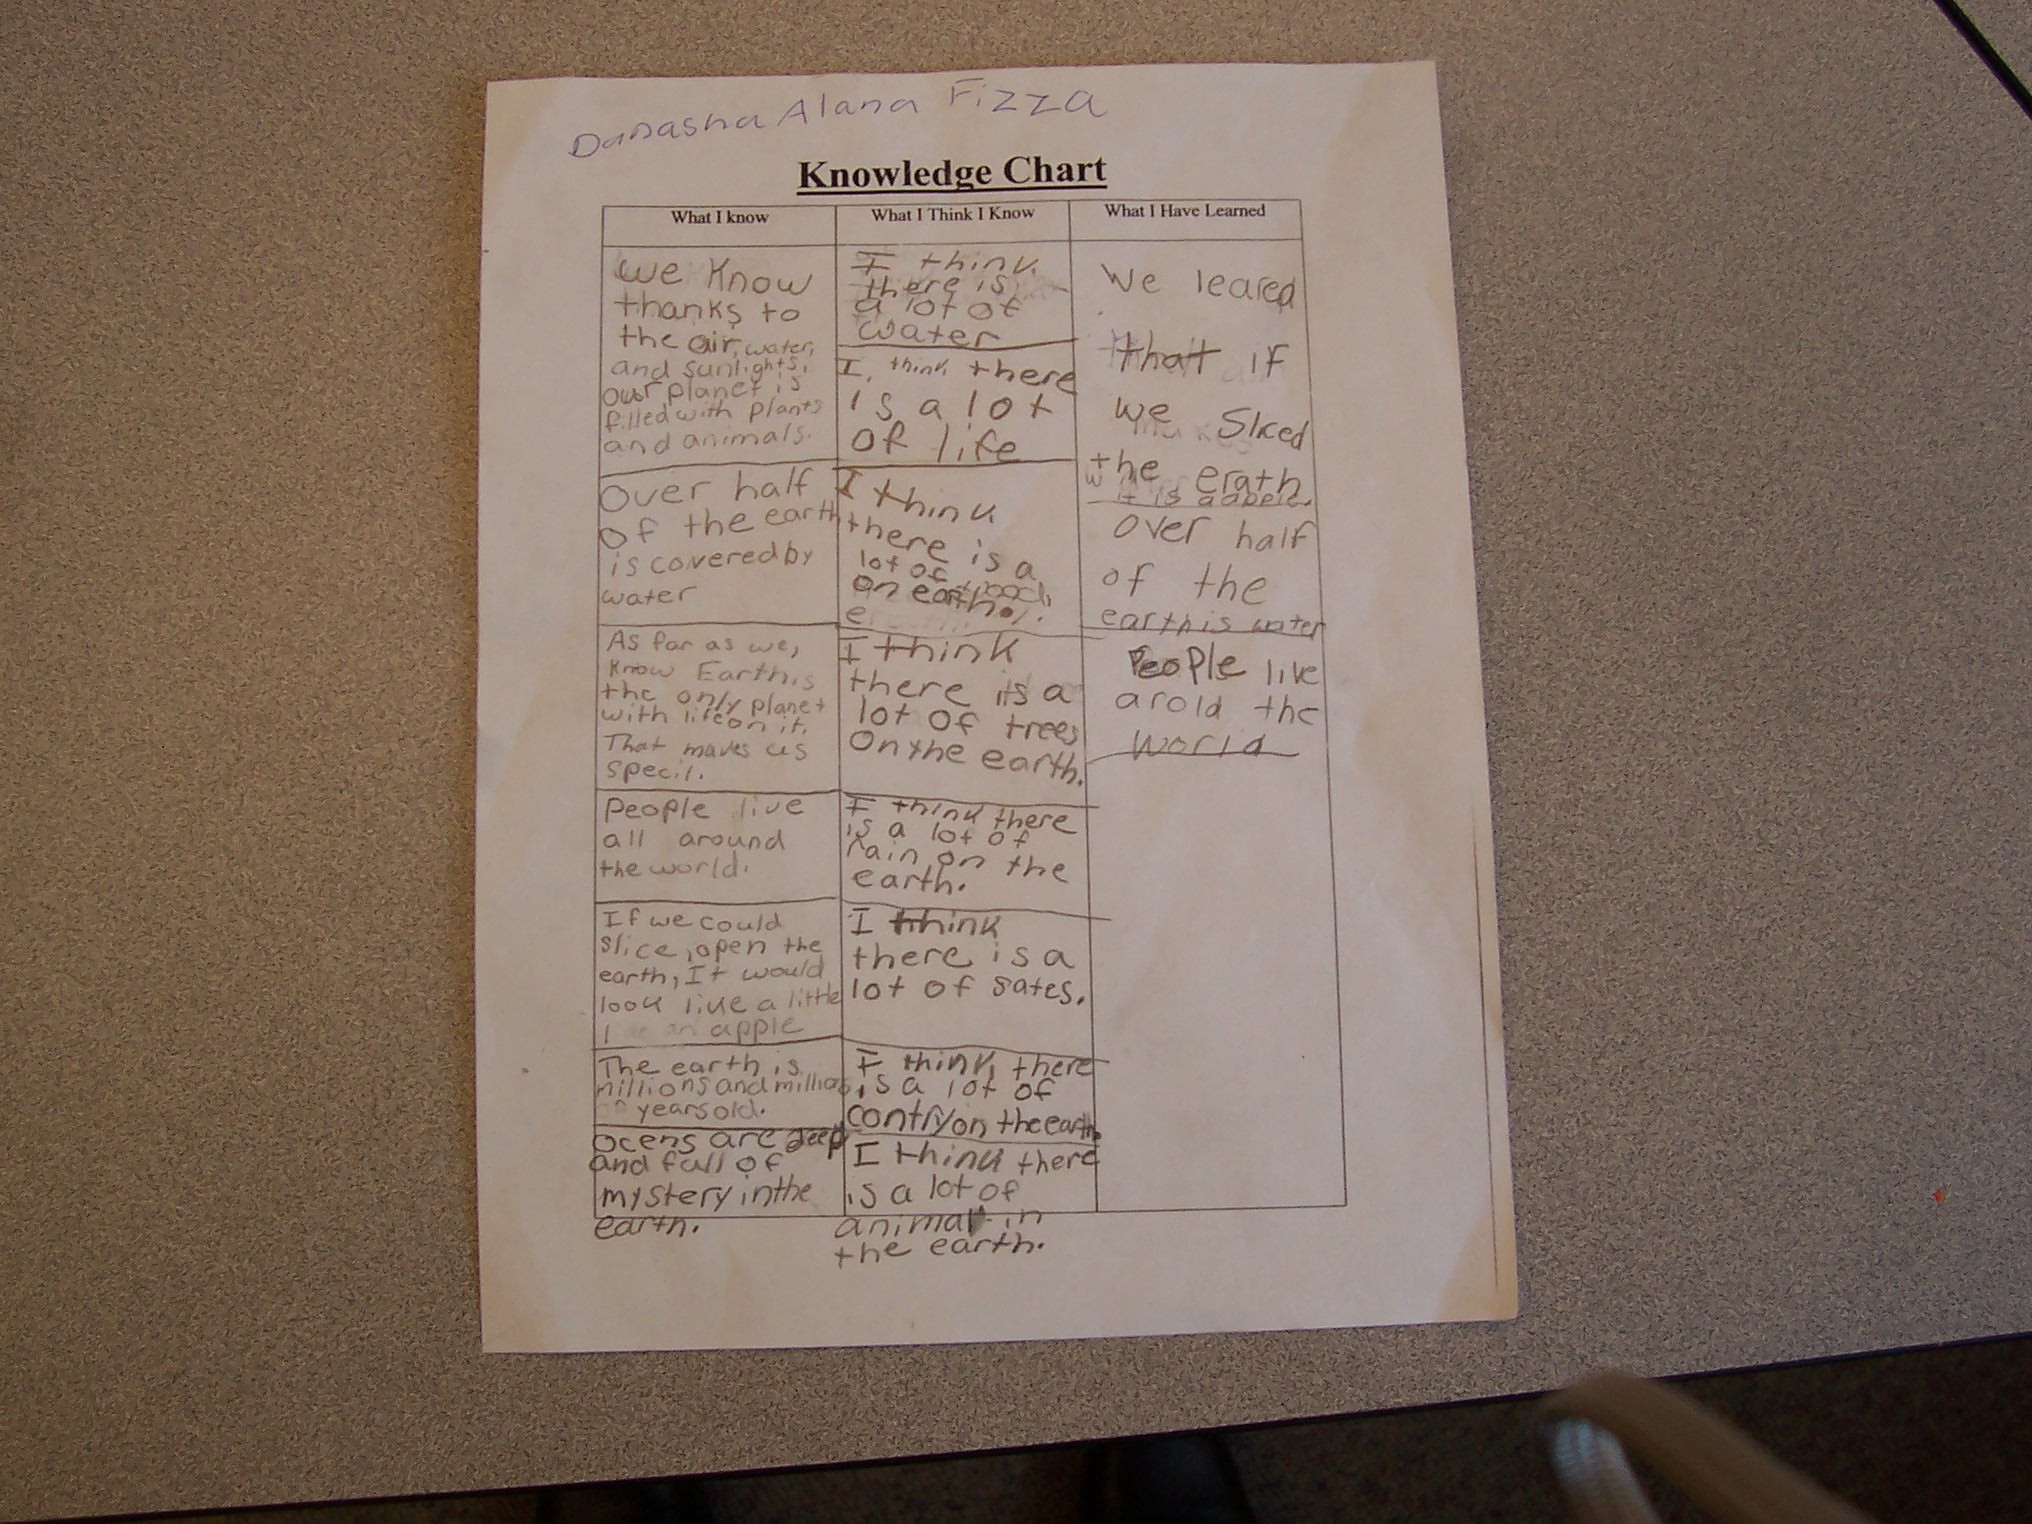 Danasha Alana Fizza
Knowledge Chart
What I know
We Know
thanks to
the air, water,
and sunlights,
our planet is
filled with plants
and animals.
Over half
of the earth
is covered by
water
As far as we,
know Earth is
the only planet
with life on it.
That makes us
specil.
People live
all around
the world.
If we could
slice, open the
earth, It would
look like a little
apple
The earth is
millions and millions
years old.
ocens are deep
and full of
mystery in the
earth.
What I Think I Know
I think
there is
a lot of
water
I, think there
is a lot
of life
I think
there is a
lot of
on earth.
I think
there is a
lot of trees
on the earth.
I think there
is a lot of
rain on the
earth.
I think
there is a
lot of sates.
I think there
is a lot of
contry on the earth.
I think there
is a lot of
animal in
the earth.
What I Have Learned
We leared
that if
we Sliced
the erath
it is a apple.
over half
of the
earth is water
People live
arold the
world